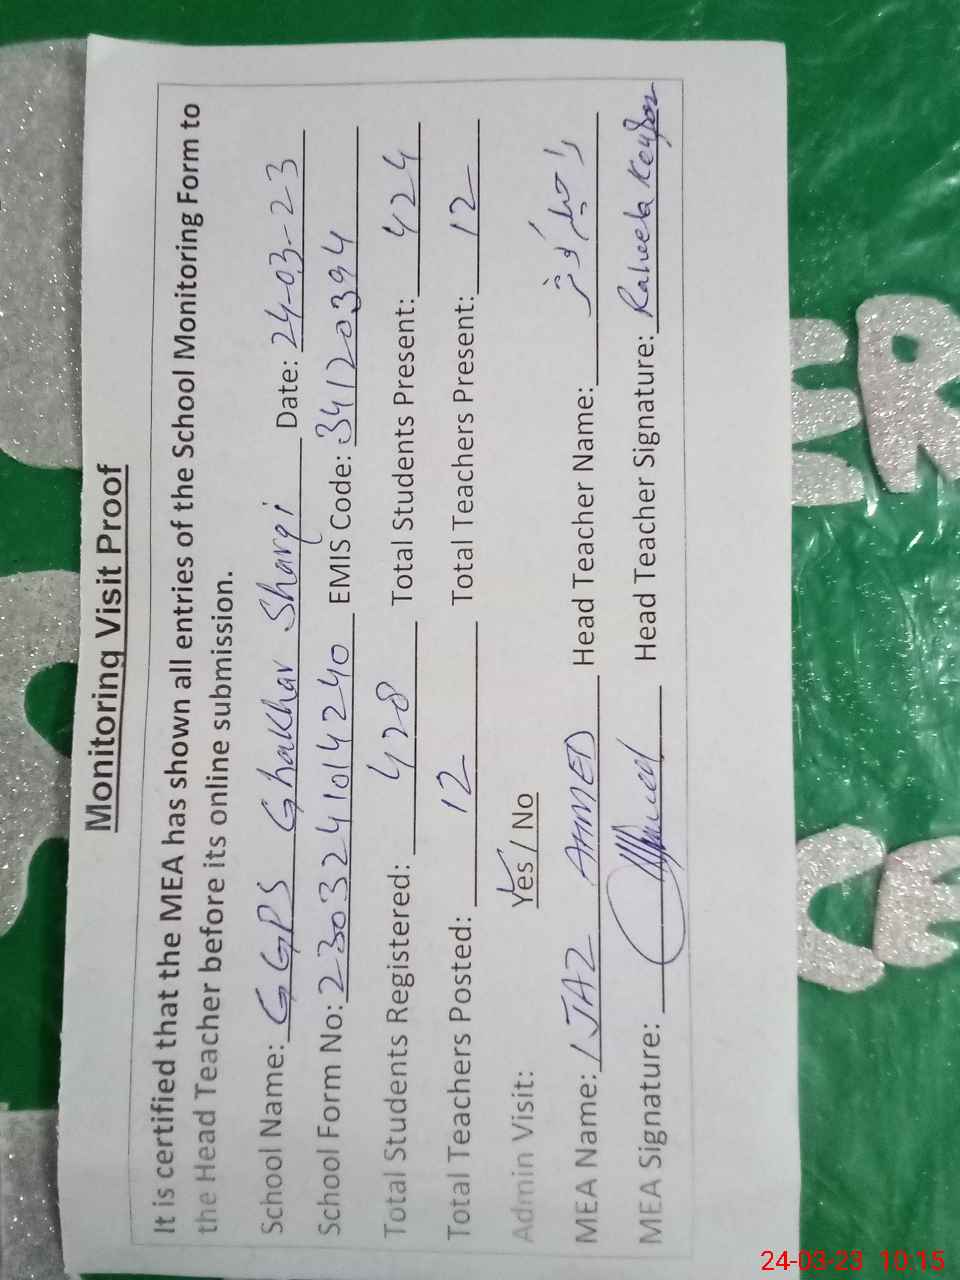 Monitoring Visit Proof
It is certified that the MEA has shown all entries of the School Monitoring Form to
the Head Teacher before its online submission.
School Name: GGPS Ghakhar Sharqi Date: 24-03-23
School Form No: 2303241014240 EMIS Code: 34120394
Total Students Registered: 428 Total Students Present: 424
Total Teachers Posted: 12 Total Teachers Present: 12
Admin Visit: Yes / No
MEA Name: IJAZ AHMED Head Teacher Name: راحیلہ کوثر
MEA Signature: Ahmed Head Teacher Signature: Raheela
CER
CE
24-03-23 10:15